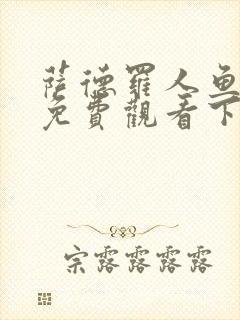 薩德羅人魚
免費觀看下
宗露露露露